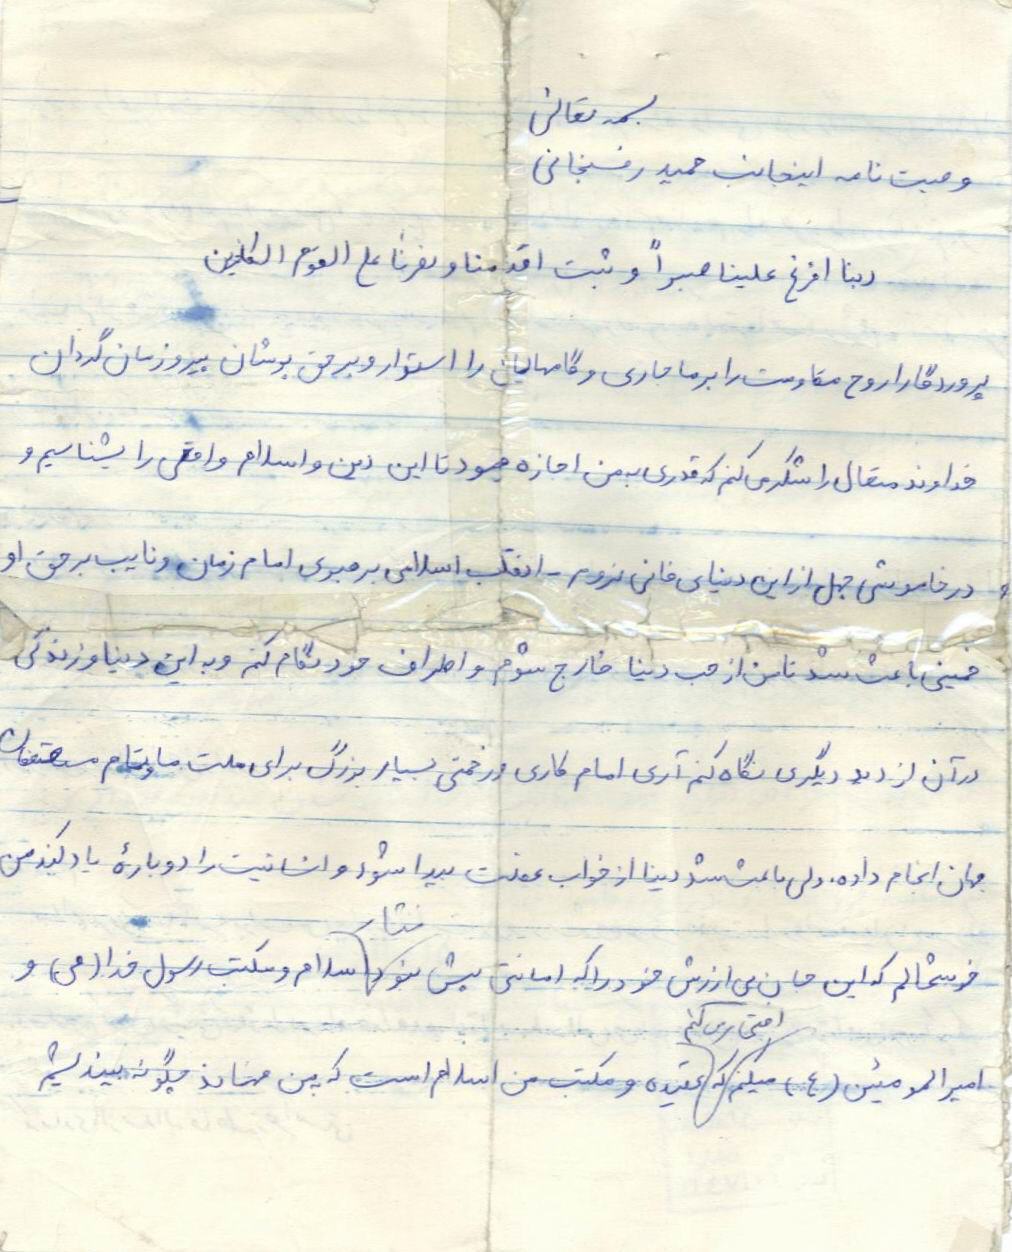 بسمه تعالی
وصیت نامه اینجانب حمید رفسنجانی
ربنا افرغ علینا صبراً و ثبت اقدامنا و نصرنا علی القوم الکافرین
پروردگارا روح مقاومت را بر ما جاری و گامهایمان را استوار و بر حق پوشان پیروزمان گردان
خداوند متعال را شکر می کنم که قدری به من اجازه داد تا این دین و اسلام واقعی را بشناسیم و
در خاموشی جهل از این دنیای فانی نروم - انقلاب اسلامی برهبری امام زمان و نایب بر حق او
خمینی باعث شد تا من از حب دنیا خارج شوم و اطراف خود نگاه کنم و به این دنیا و زندگی
در آن از دید دیگری نگاه کنم آری امام کاری و زحمتی بسیار بزرگ برای ملت ما و تمام مستضعفان
جهان انجام داده. ولی باعث شد دنیا از خواب غفلت بیدار شود و انسانیت را دوباره یاد کند من
نثار
خوشحالم که این جان بی ارزش خود را که امانتی بیش نبود اسلام و مکتب رسول خدا (ص) و
افتخار می کنم
امیر المومنین (ع) میکنم که عقیده و مکتب من اسلام است که بمن میفهماند چگونه بیندیشم